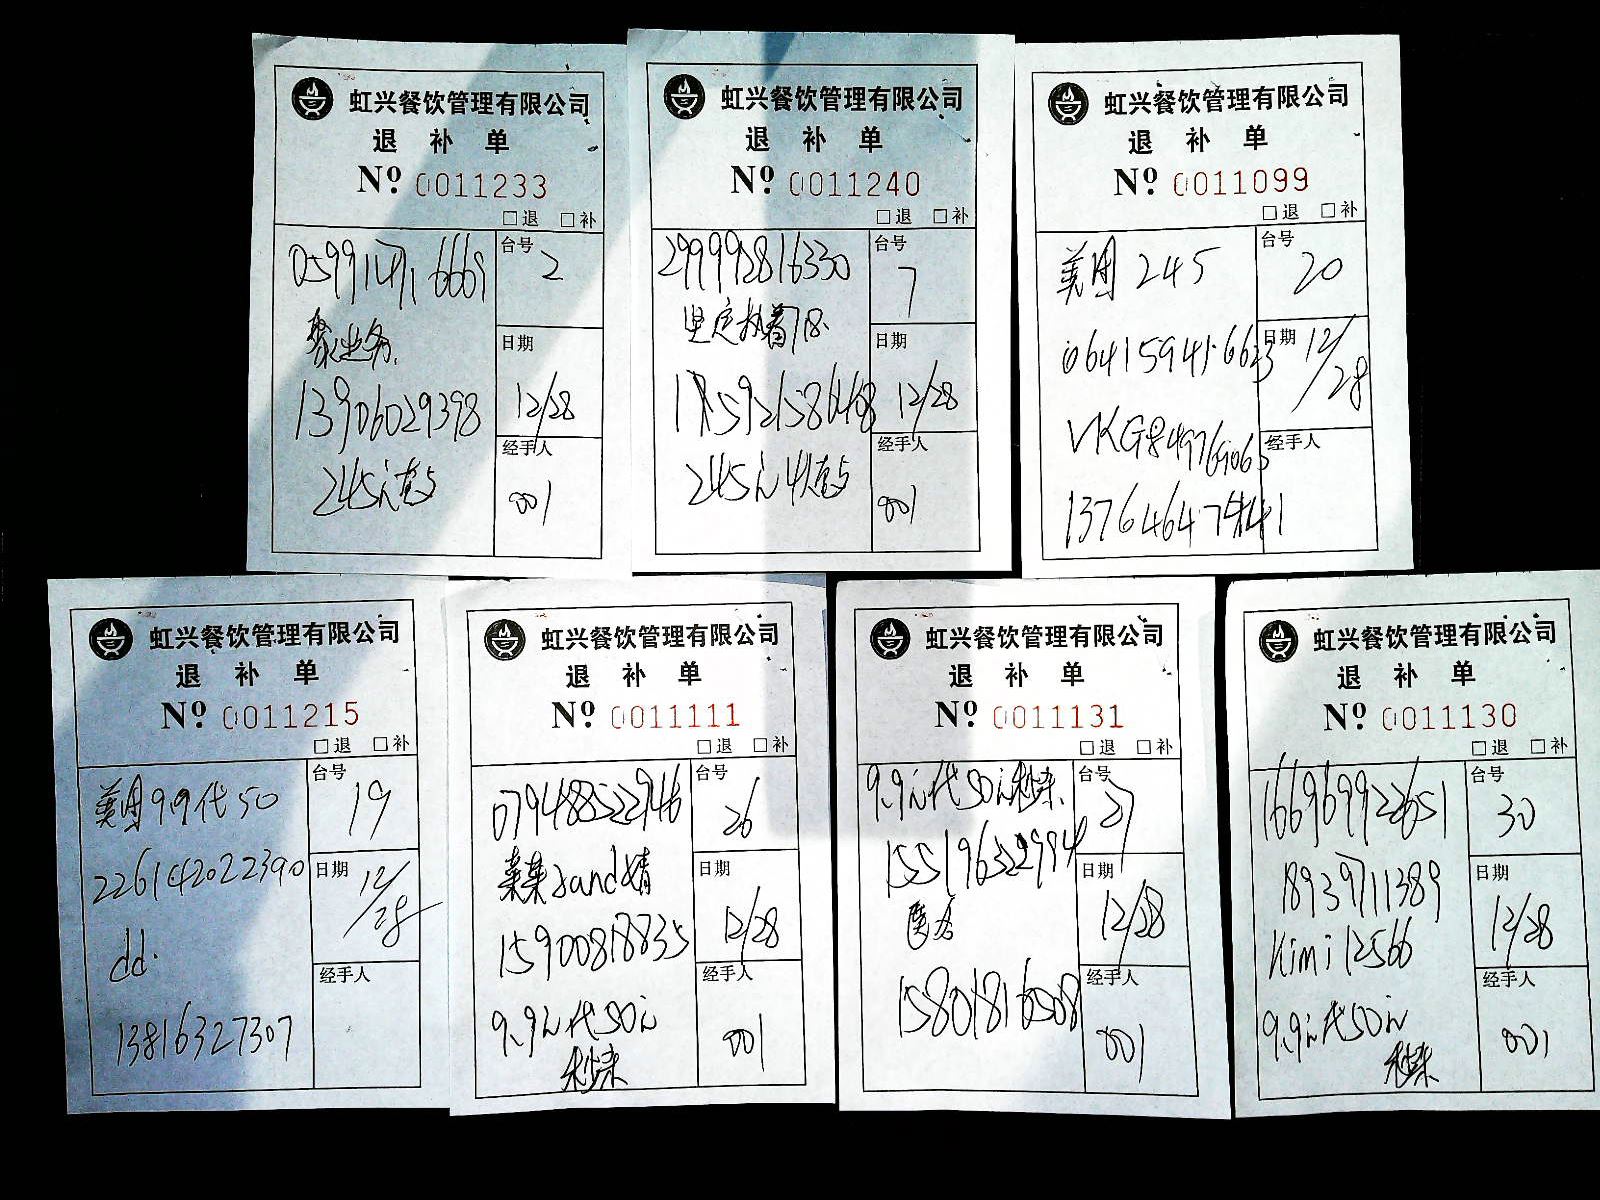 虹兴餐饮管理有限公司
退 补 单
No. 0011233
□退 □补
台号 2
6669
日期 12/28
13906029398
经手人 001
245元套
虹兴餐饮管理有限公司
退 补 单
No. 0011240
□退 □补
299992816330
台号 7
坚定执着718.
日期 12/28
经手人 001
245元
虹兴餐饮管理有限公司
退 补 单
No. 0011099
□退 □补
美团 245
台号 20
064159416623
日期 12/28
VKG849769065
经手人
虹兴餐饮管理有限公司
退 补 单
No. 0011215
□退 □补
美团9.9代50
台号 19
226142022390
日期 12/28
dd.
经手人
13816327307
虹兴餐饮管理有限公司
退 补 单
No. 0011111
□退 □补
079488522746
台号 26
日期 12/28
15900818835
经手人 001
9.9元代50元
虹兴餐饮管理有限公司
退 补 单
No. 0011131
□退 □补
9.9元代50元
台号 27
155196322994
日期 12/28
匿名
经手人 001
15801816508
虹兴餐饮管理有限公司
退 补 单
No. 0011130
□退 □补
166969922651
台号 30
18939711389
日期 12/28
Kimi12566
经手人 001
9.9元代50元